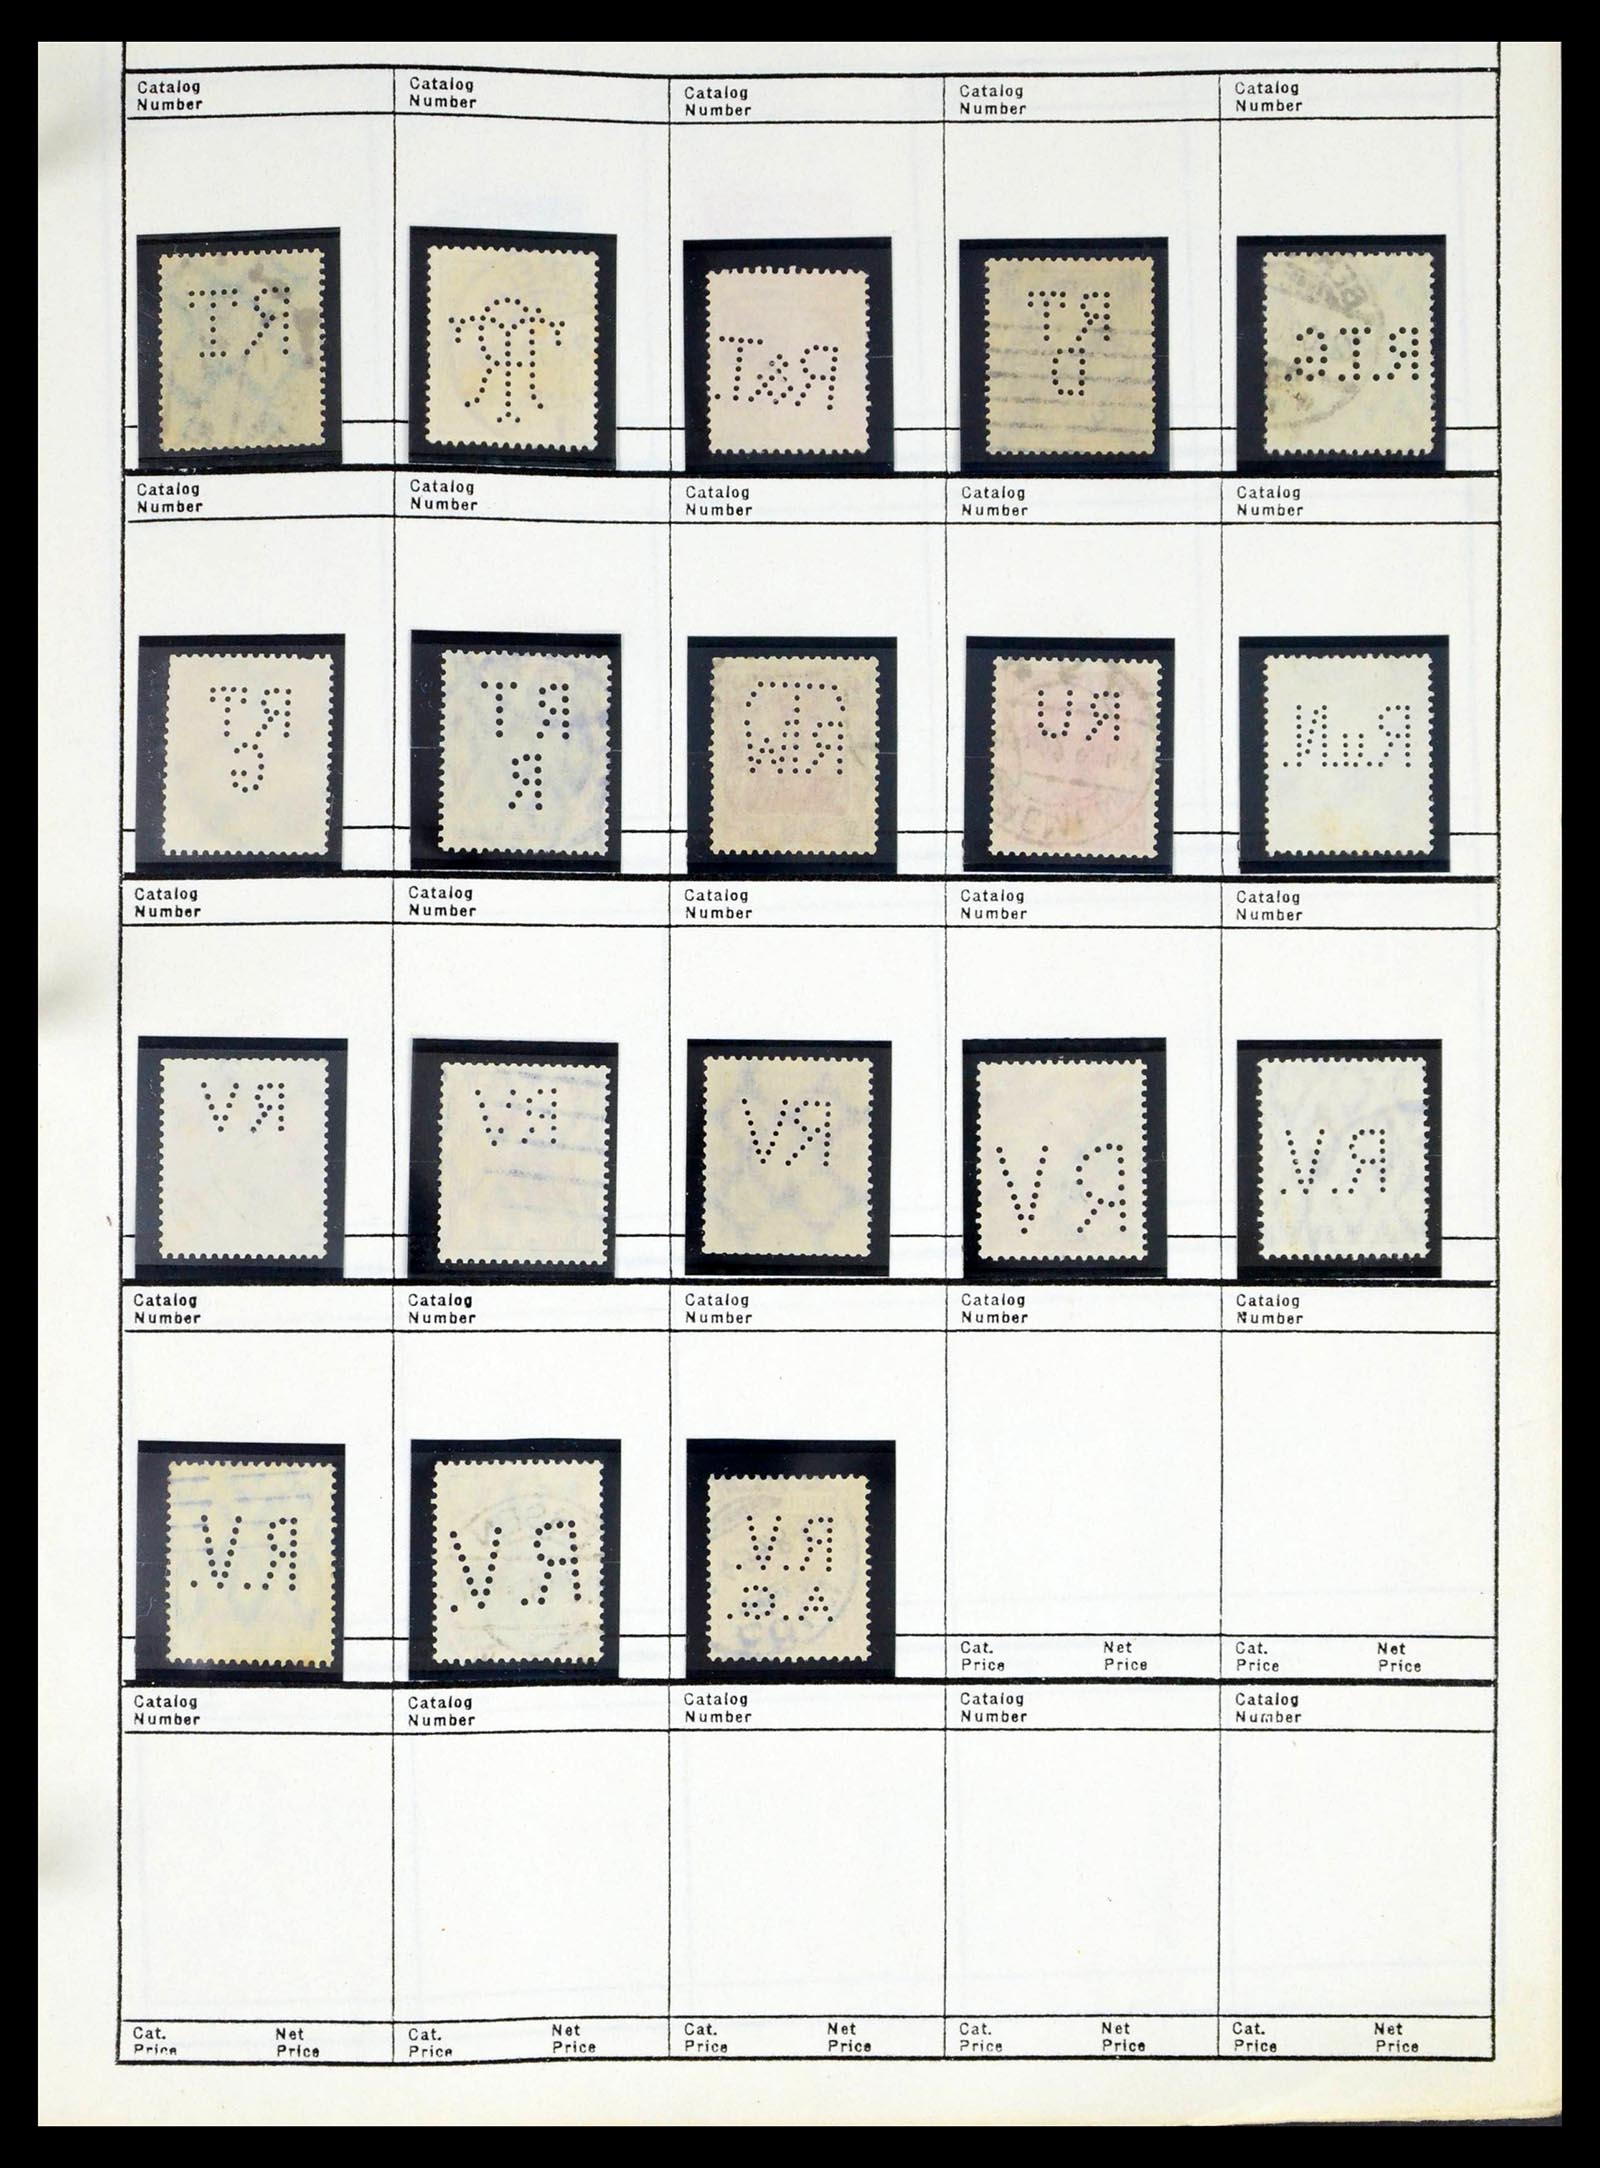 Catalog Number Catalog Number Catalog Number Catalog Number Catalog Number
RT
R&T.
RT
D
R.T.G.
Catalog Number Catalog Number Catalog Number Catalog Number Catalog Number
RT
G
RT
R
RU
RuN.
Catalog Number Catalog Number Catalog Number Catalog Number Catalog Number
RV RV RV RV R.V.
Catalog Number Catalog Number Catalog Number Catalog Number Catalog Number
R.V. R.V. R.V.
A.G.
Cat. Price Net Price Cat. Price Net Price
Catalog Number Catalog Number Catalog Number Catalog Number Catalog Number
Cat. Price Net Price Cat. Price Net Price Cat. Price Net Price Cat. Price Net Price Cat. Price Net Price